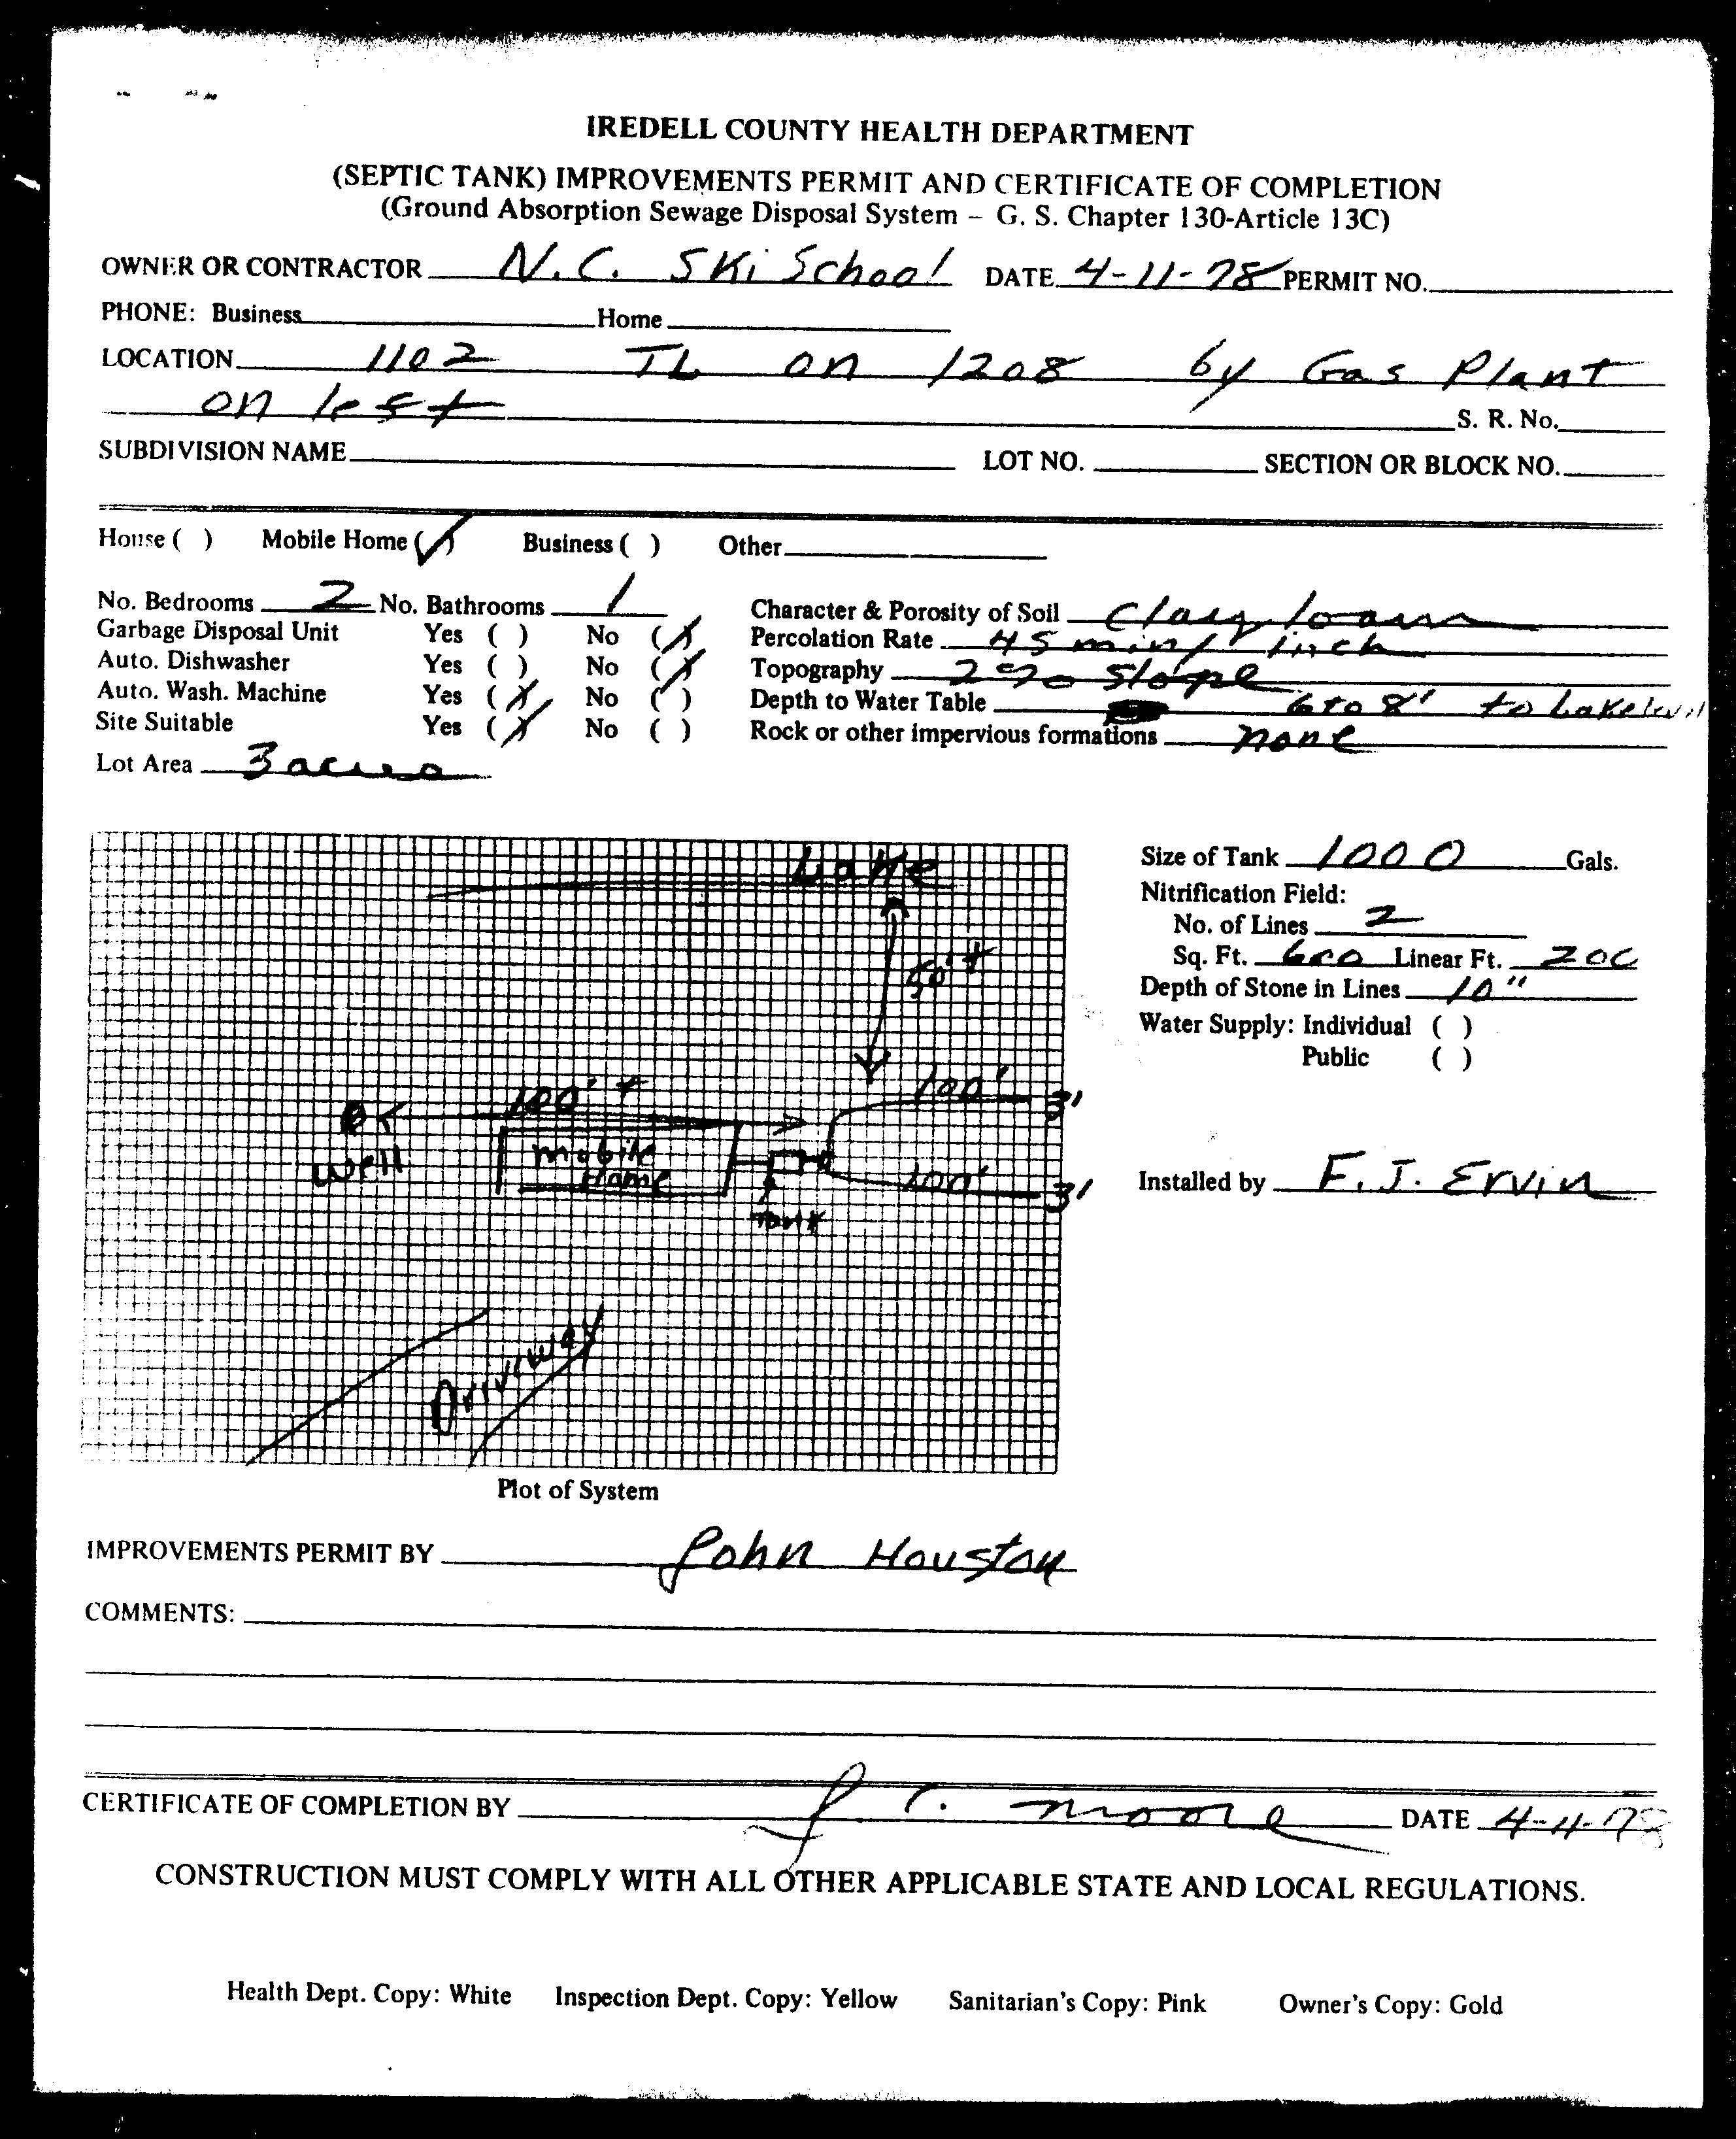 IREDELL COUNTY HEALTH DEPARTMENT
(SEPTIC TANK) IMPROVEMENTS PERMIT AND CERTIFICATE OF COMPLETION
(Ground Absorption Sewage Disposal System – G. S. Chapter 130-Article 13C)
OWNER OR CONTRACTOR N.C. SKi School DATE 4-11-78 PERMIT NO.
PHONE: Business Home
LOCATION 1102 TL on 1208 by Gas Plant
on left S. R. No.
SUBDIVISION NAME LOT NO. SECTION OR BLOCK NO.
House ( ) Mobile Home (✓) Business ( ) Other
No. Bedrooms 2 No. Bathrooms 1 Character & Porosity of Soil Clay loam
Garbage Disposal Unit Yes ( ) No (X) Percolation Rate 45 min/inch
Auto. Dishwasher Yes ( ) No (X) Topography 2% Slope
Auto. Wash. Machine Yes (X) No ( ) Depth to Water Table 6 to 8' to Lake level
Site Suitable Yes (X) No ( ) Rock or other impervious formations none
Lot Area 3 acres
Lake
50'+
100'+
100' 3'
Well
mobile
Home
100' 3'
Tank
Driveway
Size of Tank 1000 Gals.
Nitrification Field:
No. of Lines 2
Sq. Ft. 600 Linear Ft. 200
Depth of Stone in Lines 10"
Water Supply: Individual ( )
Public ( )
Installed by F. J. Ervin
Plot of System
IMPROVEMENTS PERMIT BY John Houston
COMMENTS:
CERTIFICATE OF COMPLETION BY Moore DATE 4-11-78
CONSTRUCTION MUST COMPLY WITH ALL OTHER APPLICABLE STATE AND LOCAL REGULATIONS.
Health Dept. Copy: White Inspection Dept. Copy: Yellow Sanitarian's Copy: Pink Owner's Copy: Gold